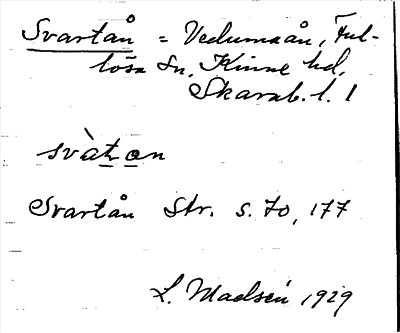 Svartån = Vedumaån, Ful-
lösa Sn, Kinne hd,
Skarab. l. 1
svàt on
Svartån Str. s. 70, 177
L. Madsén 1929